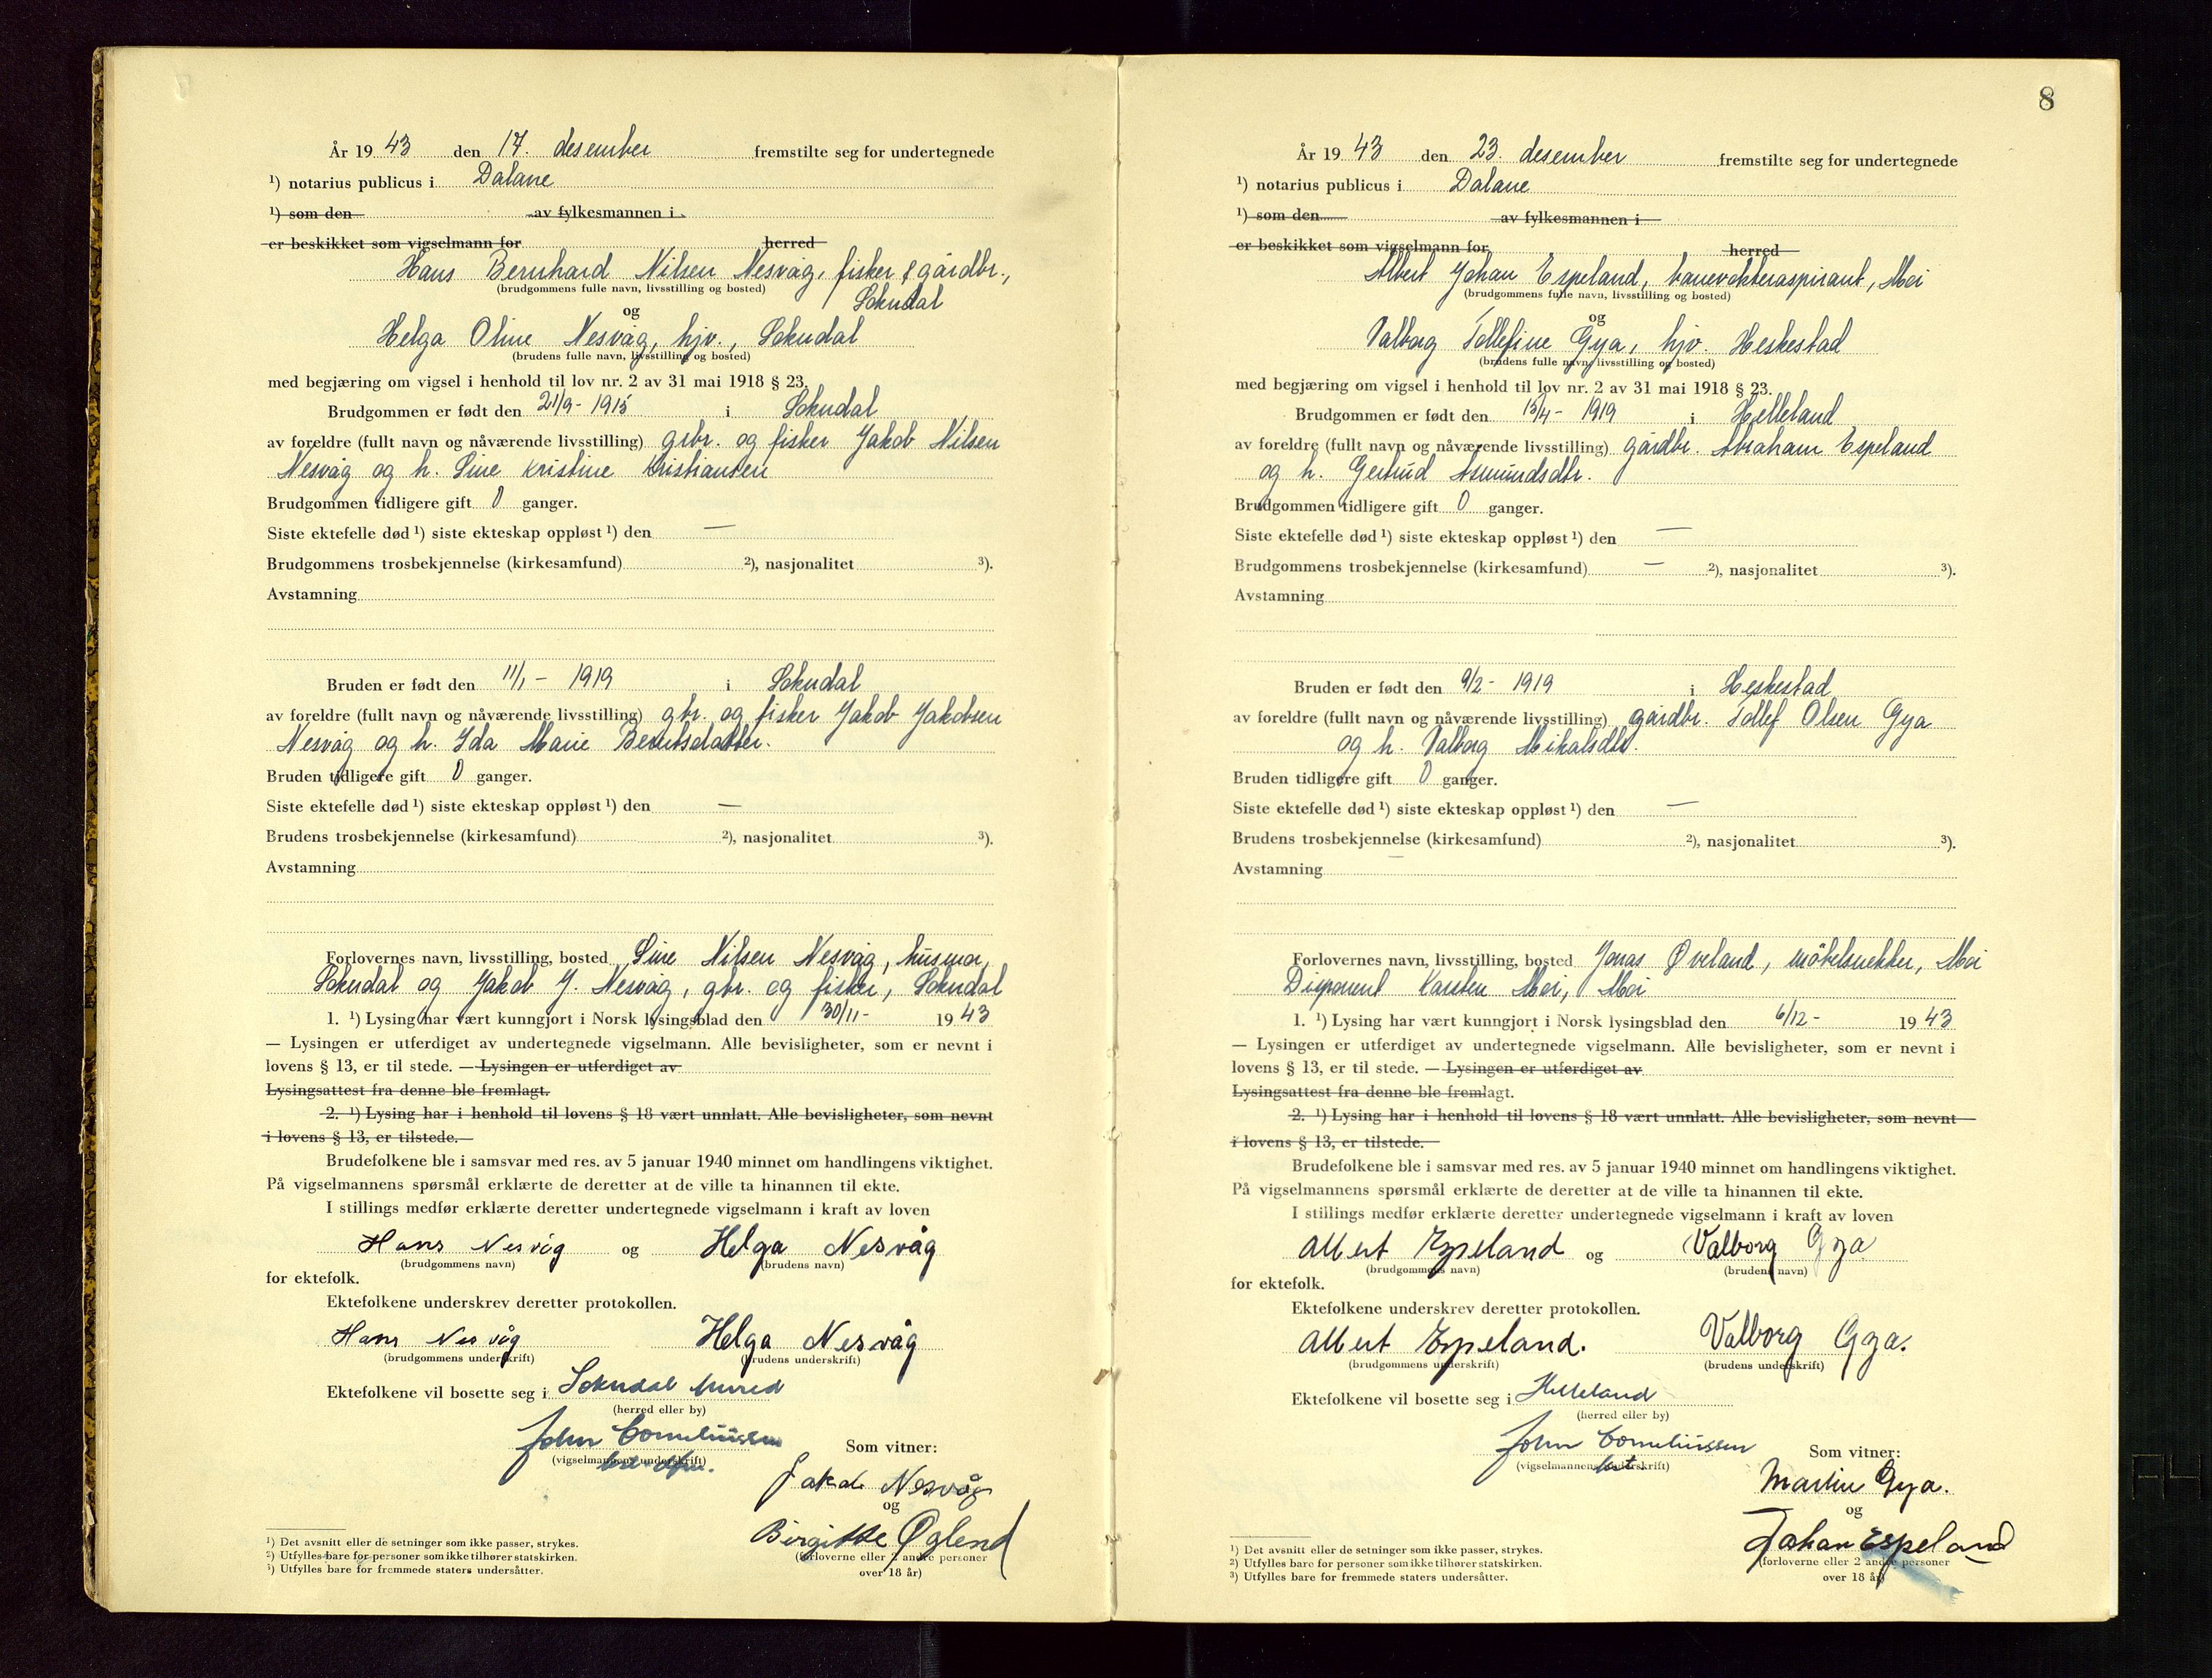 År 19 43 den 17. desember fremstilte seg for undertegnede
¹) notarius publicus i Dalane
¹) som den av fylkesmannen i
er beskikket som vigselmann for herred
Hans Bernhard Nilsen Nesvåg, fisker & gårdbr.,
(brudgommens fulle navn, livsstilling og bosted)
Sokndal
og
Helga Oline Nesvåg, hjv., Sokndal
(brudens fulle navn, livsstilling og bosted)
med begjæring om vigsel i henhold til lov nr. 2 av 31 mai 1918 § 23.
Brudgommen er født den 21/9- 1915 i Sokndal
av foreldre (fullt navn og nåværende livsstilling) gsbr. og fisker Jakob Nilsen
Nesvåg og h. Sine Kristine Kristiansen
Brudgommen tidligere gift 0 ganger.
Siste ektefelle død ¹) siste ekteskap oppløst ¹) den —
Brudgommens trosbekjennelse (kirkesamfund) ²), nasjonalitet ³).
Avstamning
Bruden er født den 11/1 - 1919 i Sokndal
av foreldre (fullt navn og nåværende livsstilling) gbr. og fisker Jakob Jakobsen
Nesvåg og h. Ida Marie Berntsdatter.
Bruden tidligere gift 0 ganger.
Siste ektefelle død ¹) siste ekteskap oppløst ¹) den —
Brudens trosbekjennelse (kirkesamfund) ²), nasjonalitet ³).
Avstamning
Forlovernes navn, livsstilling, bosted Sine Nilsen Nesvåg, husmor,
Sokndal og Jakob J. Nesvåg, gbr. og fisker, Sokndal
1. ¹) Lysing har vært kunngjort i Norsk lysingsblad den 30/11- 19 43
— Lysingen er utferdiget av undertegnede vigselmann. Alle bevisligheter, som er nevnt i
lovens § 13, er til stede. — Lysingen er utferdiget av
Lysingsattest fra denne ble fremlagt.
2. ¹) Lysing har i henhold til lovens § 18 vært unnlatt. Alle bevisligheter, som nevnt
i lovens § 13, er tilstede.
Brudefolkene ble i samsvar med res. av 5 januar 1940 minnet om handlingens viktighet.
På vigselmannens spørsmål erklærte de deretter at de ville ta hinannen til ekte.
I stillings medfør erklærte deretter undertegnede vigselmann i kraft av loven
Hans Nesvåg og Helga Nesvåg
(brudgommens navn) (brudens navn)
for ektefolk.
Ektefolkene underskrev deretter protokollen.
Hans Nesvåg Helga Nesvåg
(brudgommens underskrift) (brudens underskrift)
Ektefolkene vil bosette seg i Sokndal herred
(herred eller by)
John Corneliussen
(vigselmannens underskrift)
Som vitner:
Jakob Nesvåg
og
Birgitte Øglend
(forloverne eller 2 andre personer
over 18 år)
¹) Det avsnitt eller de setninger som ikke passer, strykes.
²) Utfylles bare for personer som ikke tilhører statskirken.
³) Utfylles bare for fremmede staters undersåtter.
8
År 19 43 den 23. desember fremstilte seg for undertegnede
¹) notarius publicus i Dalane
¹) som den av fylkesmannen i
er beskikket som vigselmann for herred
Albert Johan Espeland, banevokteraspirant, Moi
(brudgommens fulle navn, livsstilling og bosted)
og
Valborg Tollefine Gya, hjv. Heskestad
(brudens fulle navn, livsstilling og bosted)
med begjæring om vigsel i henhold til lov nr. 2 av 31 mai 1918 § 23.
Brudgommen er født den 15/4- 1919 i Helleland
av foreldre (fullt navn og nåværende livsstilling) gårdbr. Abraham Espeland
og h. Gertrud Asmundsdtr.
Brudgommen tidligere gift 0 ganger.
Siste ektefelle død ¹) siste ekteskap oppløst ¹) den —
Brudgommens trosbekjennelse (kirkesamfund) — ²), nasjonalitet ³).
Avstamning
Bruden er født den 9/2- 1919 i Heskestad
av foreldre (fullt navn og nåværende livsstilling) gårdbr. Tollef Olsen Gya
og h. Valborg Mikalsdtr.
Bruden tidligere gift 0 ganger.
Siste ektefelle død ¹) siste ekteskap oppløst ¹) den —
Brudens trosbekjennelse (kirkesamfund) ²), nasjonalitet ³).
Avstamning
Forlovernes navn, livsstilling, bosted Jonas Øveland, møbelsnekker, Moi
Disponent Karsten Moi, Moi
1. ¹) Lysing har vært kunngjort i Norsk lysingsblad den 6/12- 19 43
— Lysingen er utferdiget av undertegnede vigselmann. Alle bevisligheter, som er nevnt i
lovens § 13, er til stede. — Lysingen er utferdiget av
Lysingsattest fra denne ble fremlagt.
2. ¹) Lysing har i henhold til lovens § 18 vært unnlatt. Alle bevisligheter, som nevnt
i lovens § 13, er tilstede.
Brudefolkene ble i samsvar med res. av 5 januar 1940 minnet om handlingens viktighet.
På vigselmannens spørsmål erklærte de deretter at de ville ta hinannen til ekte.
I stillings medfør erklærte deretter undertegnede vigselmann i kraft av loven
Albert Espeland og Valborg Gya
(brudgommens navn) (brudens navn)
for ektefolk.
Ektefolkene underskrev deretter protokollen.
Albert Espeland. Valborg Gya.
(brudgommens underskrift) (brudens underskrift)
Ektefolkene vil bosette seg i Helleland
(herred eller by)
John Corneliussen
(vigselmannens underskrift)
Som vitner:
Martin Gya.
og
Johan Espeland
(forloverne eller 2 andre personer
over 18 år)
¹) Det avsnitt eller de setninger som ikke passer, strykes.
²) Utfylles bare for personer som ikke tilhører statskirken.
³) Utfylles bare for fremmede staters undersåtter.